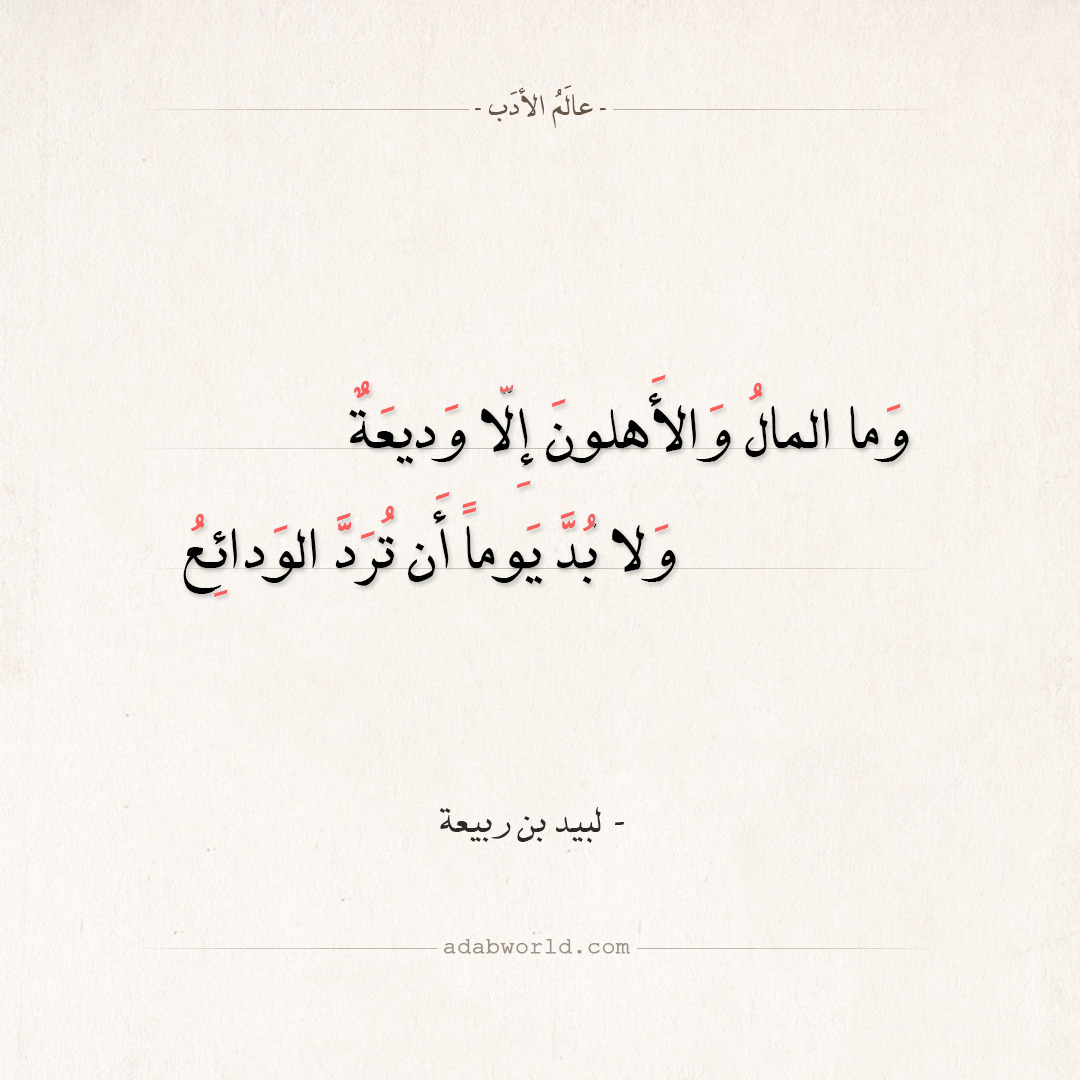 - عالَمُ الأدَب -
وَما المالُ وَالأَهلونَ إِلّا وَديعَةٌ
وَلا بُدَّ يَوماً أَن تُرَدَّ الوَدائِعُ
- لبيد بن ربيعة
adabworld.com